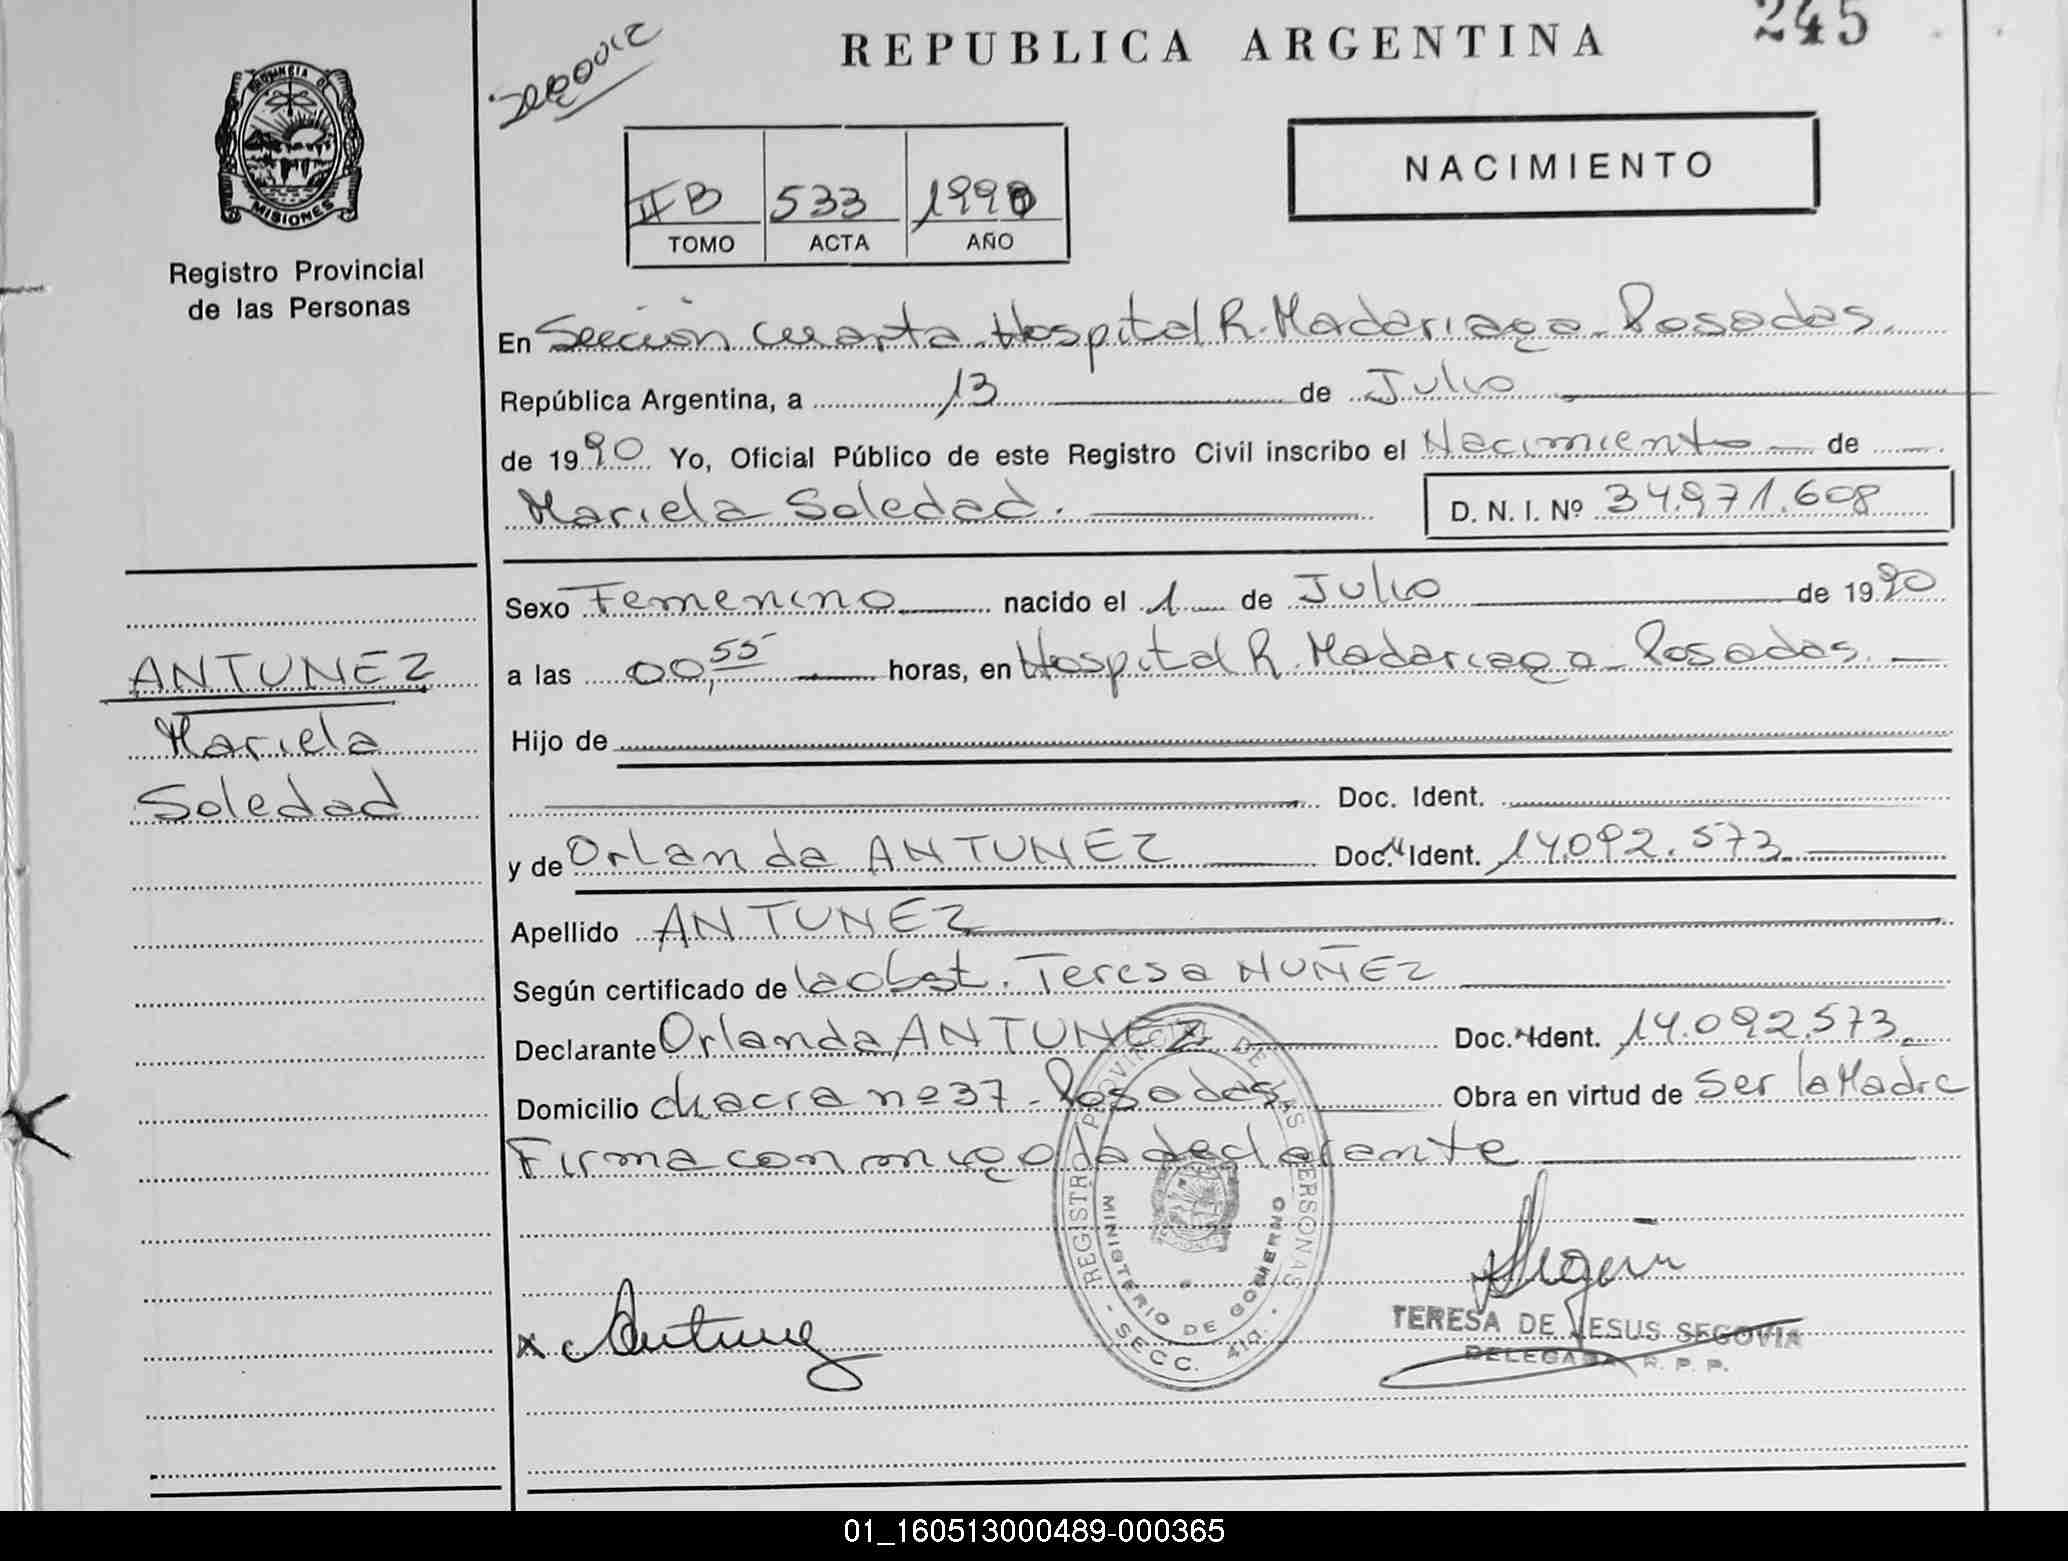 REPUBLICA ARGENTINA
245
PROVINCIA DE
MISIONES
Registro Provincial
de las Personas
II B 533 1990
TOMO ACTA AÑO
NACIMIENTO
En Sección cuarta Hospital R. Madariaga - Posadas.
República Argentina, a 13 de Julio
de 1990 Yo, Oficial Público de este Registro Civil inscribo el Nacimiento de
Mariela Soledad. D. N. I. Nº 34.971.608
Sexo Femenino nacido el 1 de Julio de 1990
a las 00,55 horas, en Hospital R. Madariaga - Posadas.
ANTUNEZ
Mariela
Soledad
Hijo de
Doc. Ident.
y de Orlanda ANTUNEZ Doc. Ident. 14.092.573
Apellido ANTUNEZ
Según certificado de la Obst. Teresa NUÑEZ
Declarante Orlanda ANTUNEZ Doc. Ident. 14.092.573
Domicilio chacra nº 37 - Posadas Obra en virtud de Ser la Madre
Firma conmigo la declarante
REGISTRO PROVINCIAL DE LAS PERSONAS
MINISTERIO DE GOBIERNO
- SECC. 4ta. -
x Antunez
TERESA DE JESUS SEGOVIA
DELEGADA R. P. P.
01_160513000489-000365